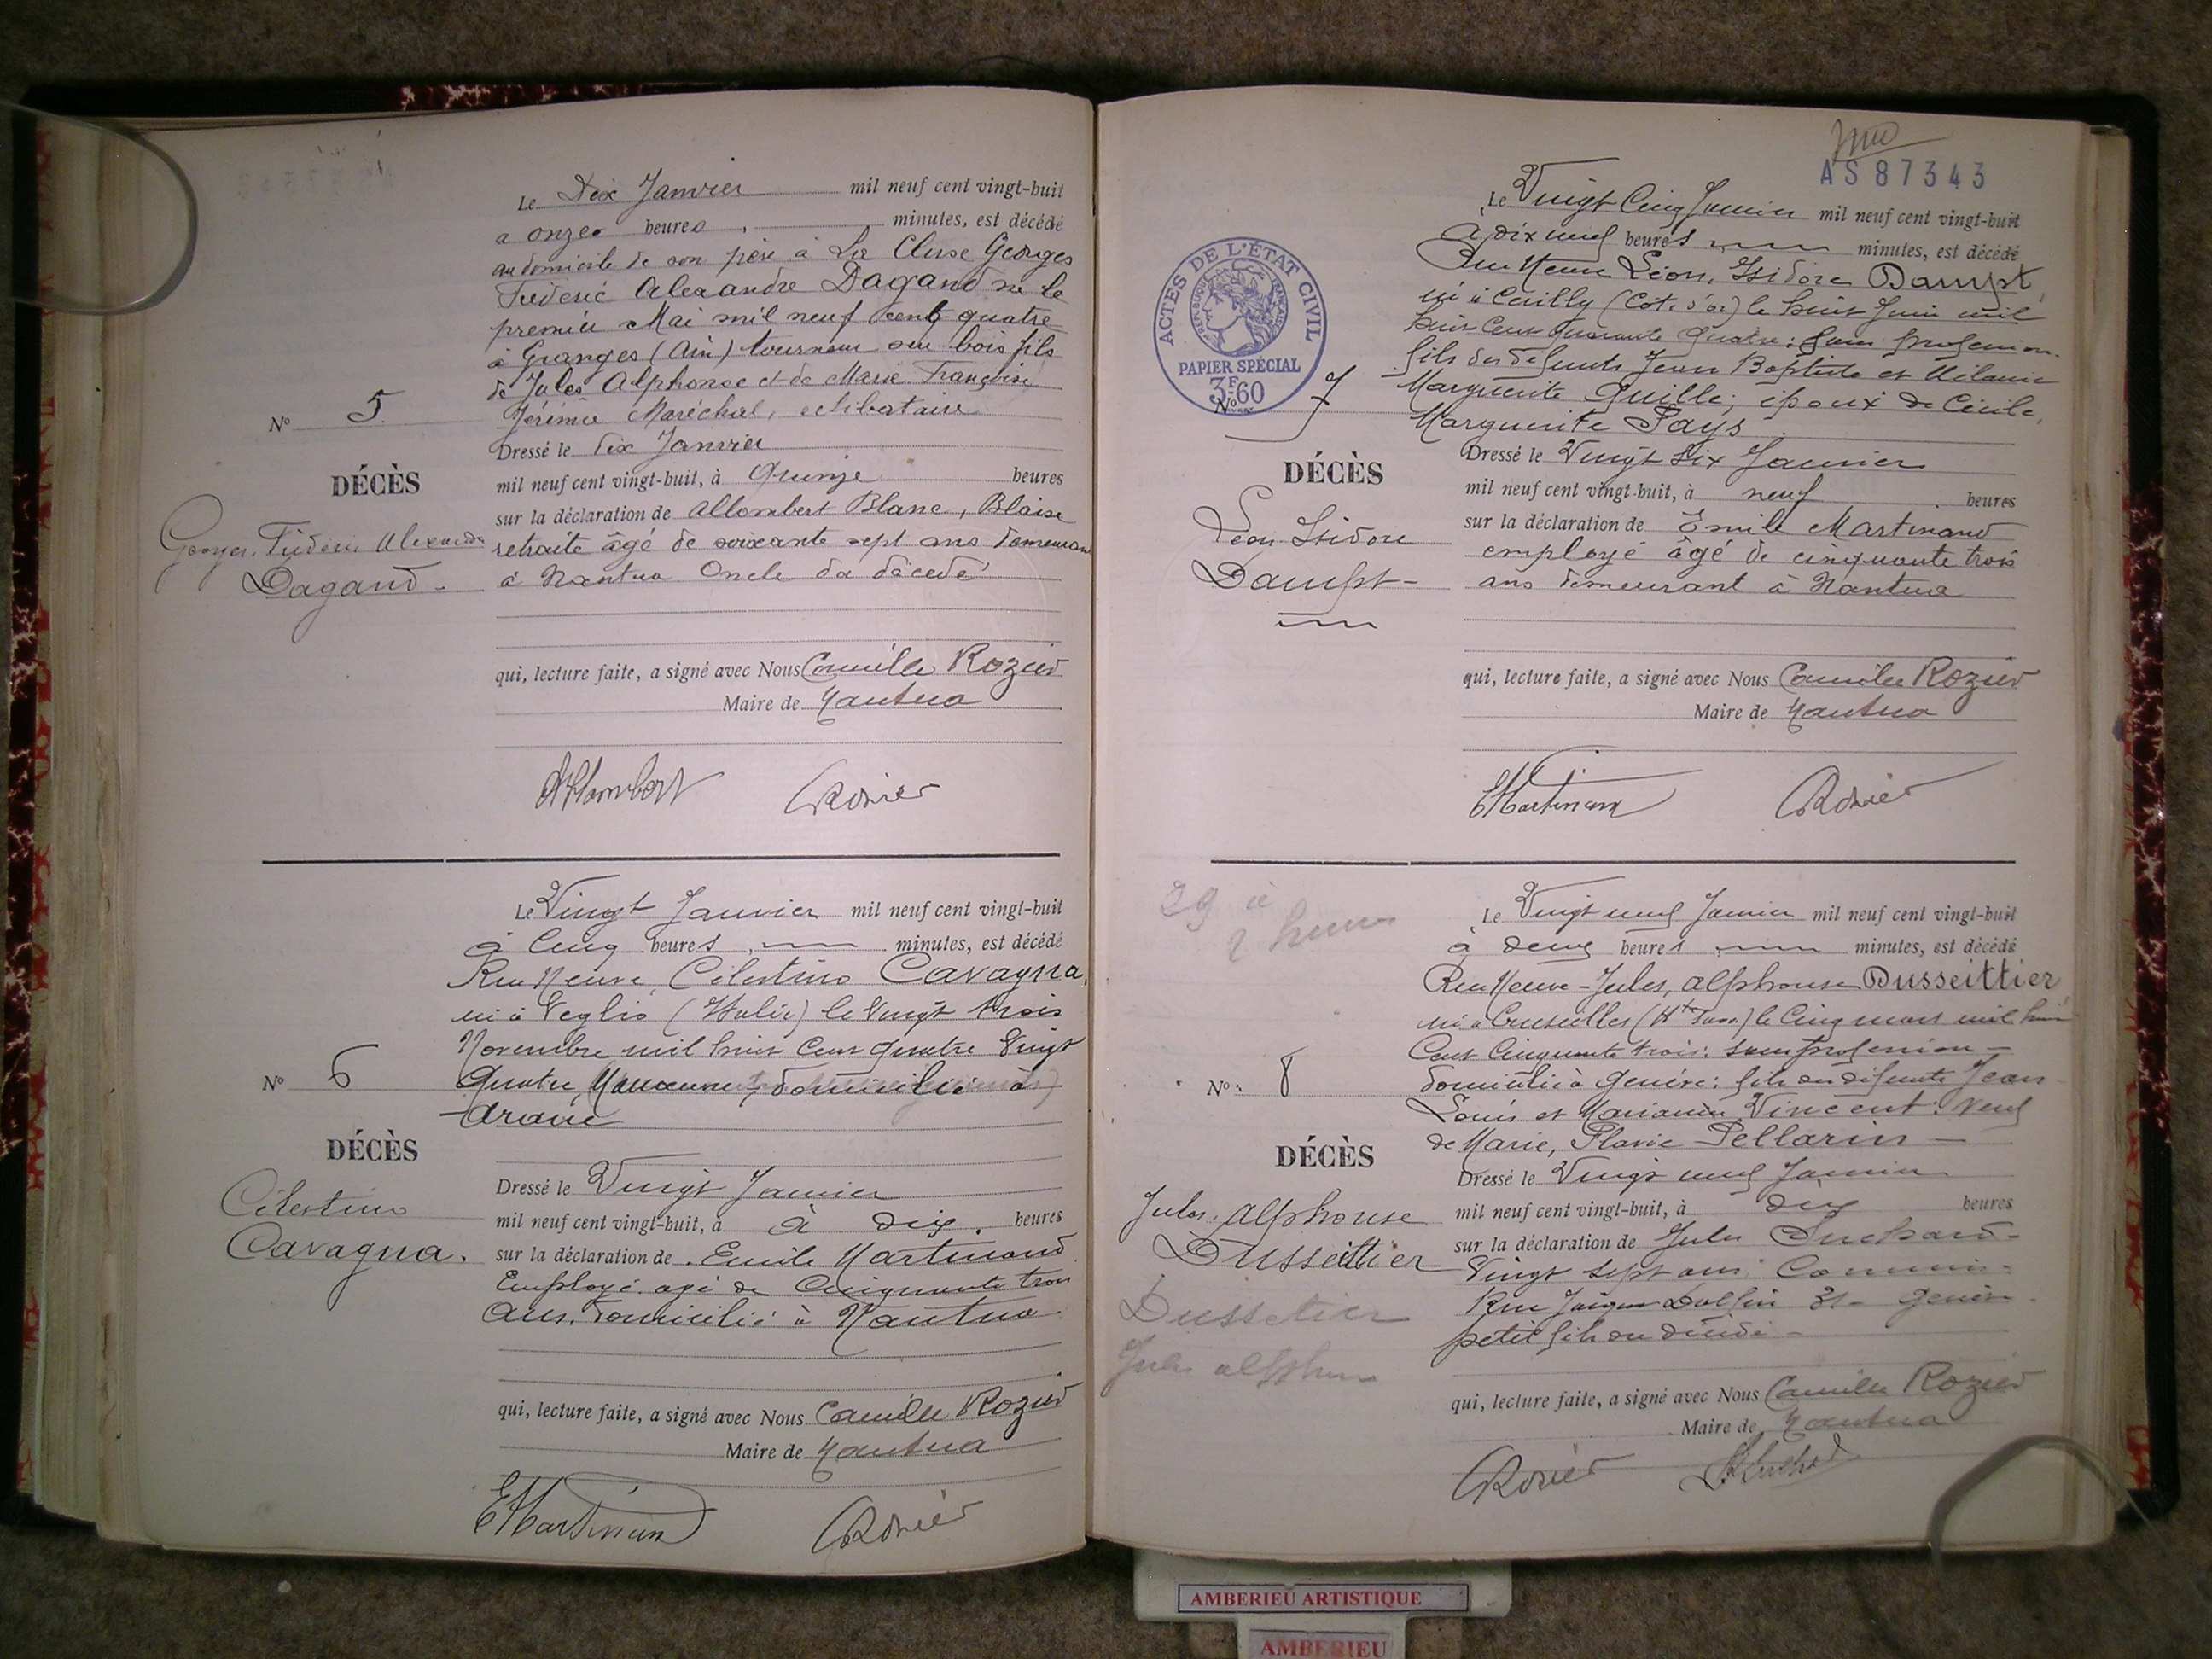 Le Dix Janvier mil neuf cent vingt-huit
a onze heures minutes, est décédé
au domicile de son père à La Cluse Georges
Frédéric Alexandre Dagand né le
premier Mai mil neuf cent quatre
à Granges (Ain) tourneur sur bois fils
de Jules Alphonse et de Marie Françoise
Jérémie Maréchal, célibataire
Nº 5
Dressé le dix Janvier
DÉCÈS
mil neuf cent vingt-huit, à Quinze heures
sur la déclaration de Allombert Blanc, Blaise
Georges, Frédéric Alexandre
retraité âgé de soixante sept ans demeurant
Dagand
à Nantua Oncle du décédé
qui, lecture faite, a signé avec Nous Camille Rozier
Maire de Nantua
Allombert Rozier
Le Vingt Janvier mil neuf cent vingt-huit
à Cinq heures minutes, est décédé
Rue Neuve, Célestino Cavagna,
né à Veglio (Italie) le Vingt trois
Novembre mil huit Cent quatre Vingt
Nº 6
Quatre, domicilié à
DÉCÈS
Dressé le Vingt Janvier
Célestino
mil neuf cent vingt-huit, à à dix heures
Cavagna.
sur la déclaration de Emile Martinand
Employé âgé de Cinquante trois
ans, domicilié à Nantua
qui, lecture faite, a signé avec Nous Camille Rozier
Maire de Nantua
EMartinand Rozier
AS87343
Le Vingt Cinq Janvier mil neuf cent vingt-huit
à dix neuf heures minutes, est décédé
Rue Neuve Léon, Isidore Dampt,
né à Cuilly (Cote d'or) le huit Juin mil
huit Cent Quarante Quatre: sans profession.
fils des défunts Jean Baptiste et Mélanie
Marguerite Quille; époux de Cécile,
Marguerite Pays
ACTES DE L'ÉTAT CIVIL
RÉPUBLIQUE FRANÇAISE
PAPIER SPÉCIAL
3F60
Nº 7
Dressé le Vingt Six Janvier
DÉCÈS
mil neuf cent vingt-huit, à neuf heures
Léon Isidore
sur la déclaration de Emile Martinand
employé âgé de cinquante trois
Dampt
ans demeurant à Nantua
qui, lecture faite, a signé avec Nous Camille Rozier
Maire de Nantua
EMartinand Rozier
29 à
2 heures
Le Vingt neuf Janvier mil neuf cent vingt-huit
à deux heures minutes, est décédé
Rue Neuve - Jules, Alphonse Dusseittier
né à Cruseilles (Hte Savoie) le Cinq mars mil huit
Cent Cinquante trois: sans profession -
Nº 8
domicilié à Genève: fils des défunts Jean
Louis et Marianne Vincent: veuf
de Marie, Flavie Pellarin -
DÉCÈS
Dressé le Vingt neuf Janvier
Jules, Alphonse
mil neuf cent vingt-huit, à dix heures
Dusseittier
sur la déclaration de Jules
Vingt sept ans Commis
Dussetier
Rue Jacques Dalphin 31 - Genève
Jules alphonse
petit fils du décédé -
qui, lecture faite, a signé avec Nous Camille Rozier
Maire de Nantua
Rozier
AMBERIEU ARTISTIQUE
AMBERIEU